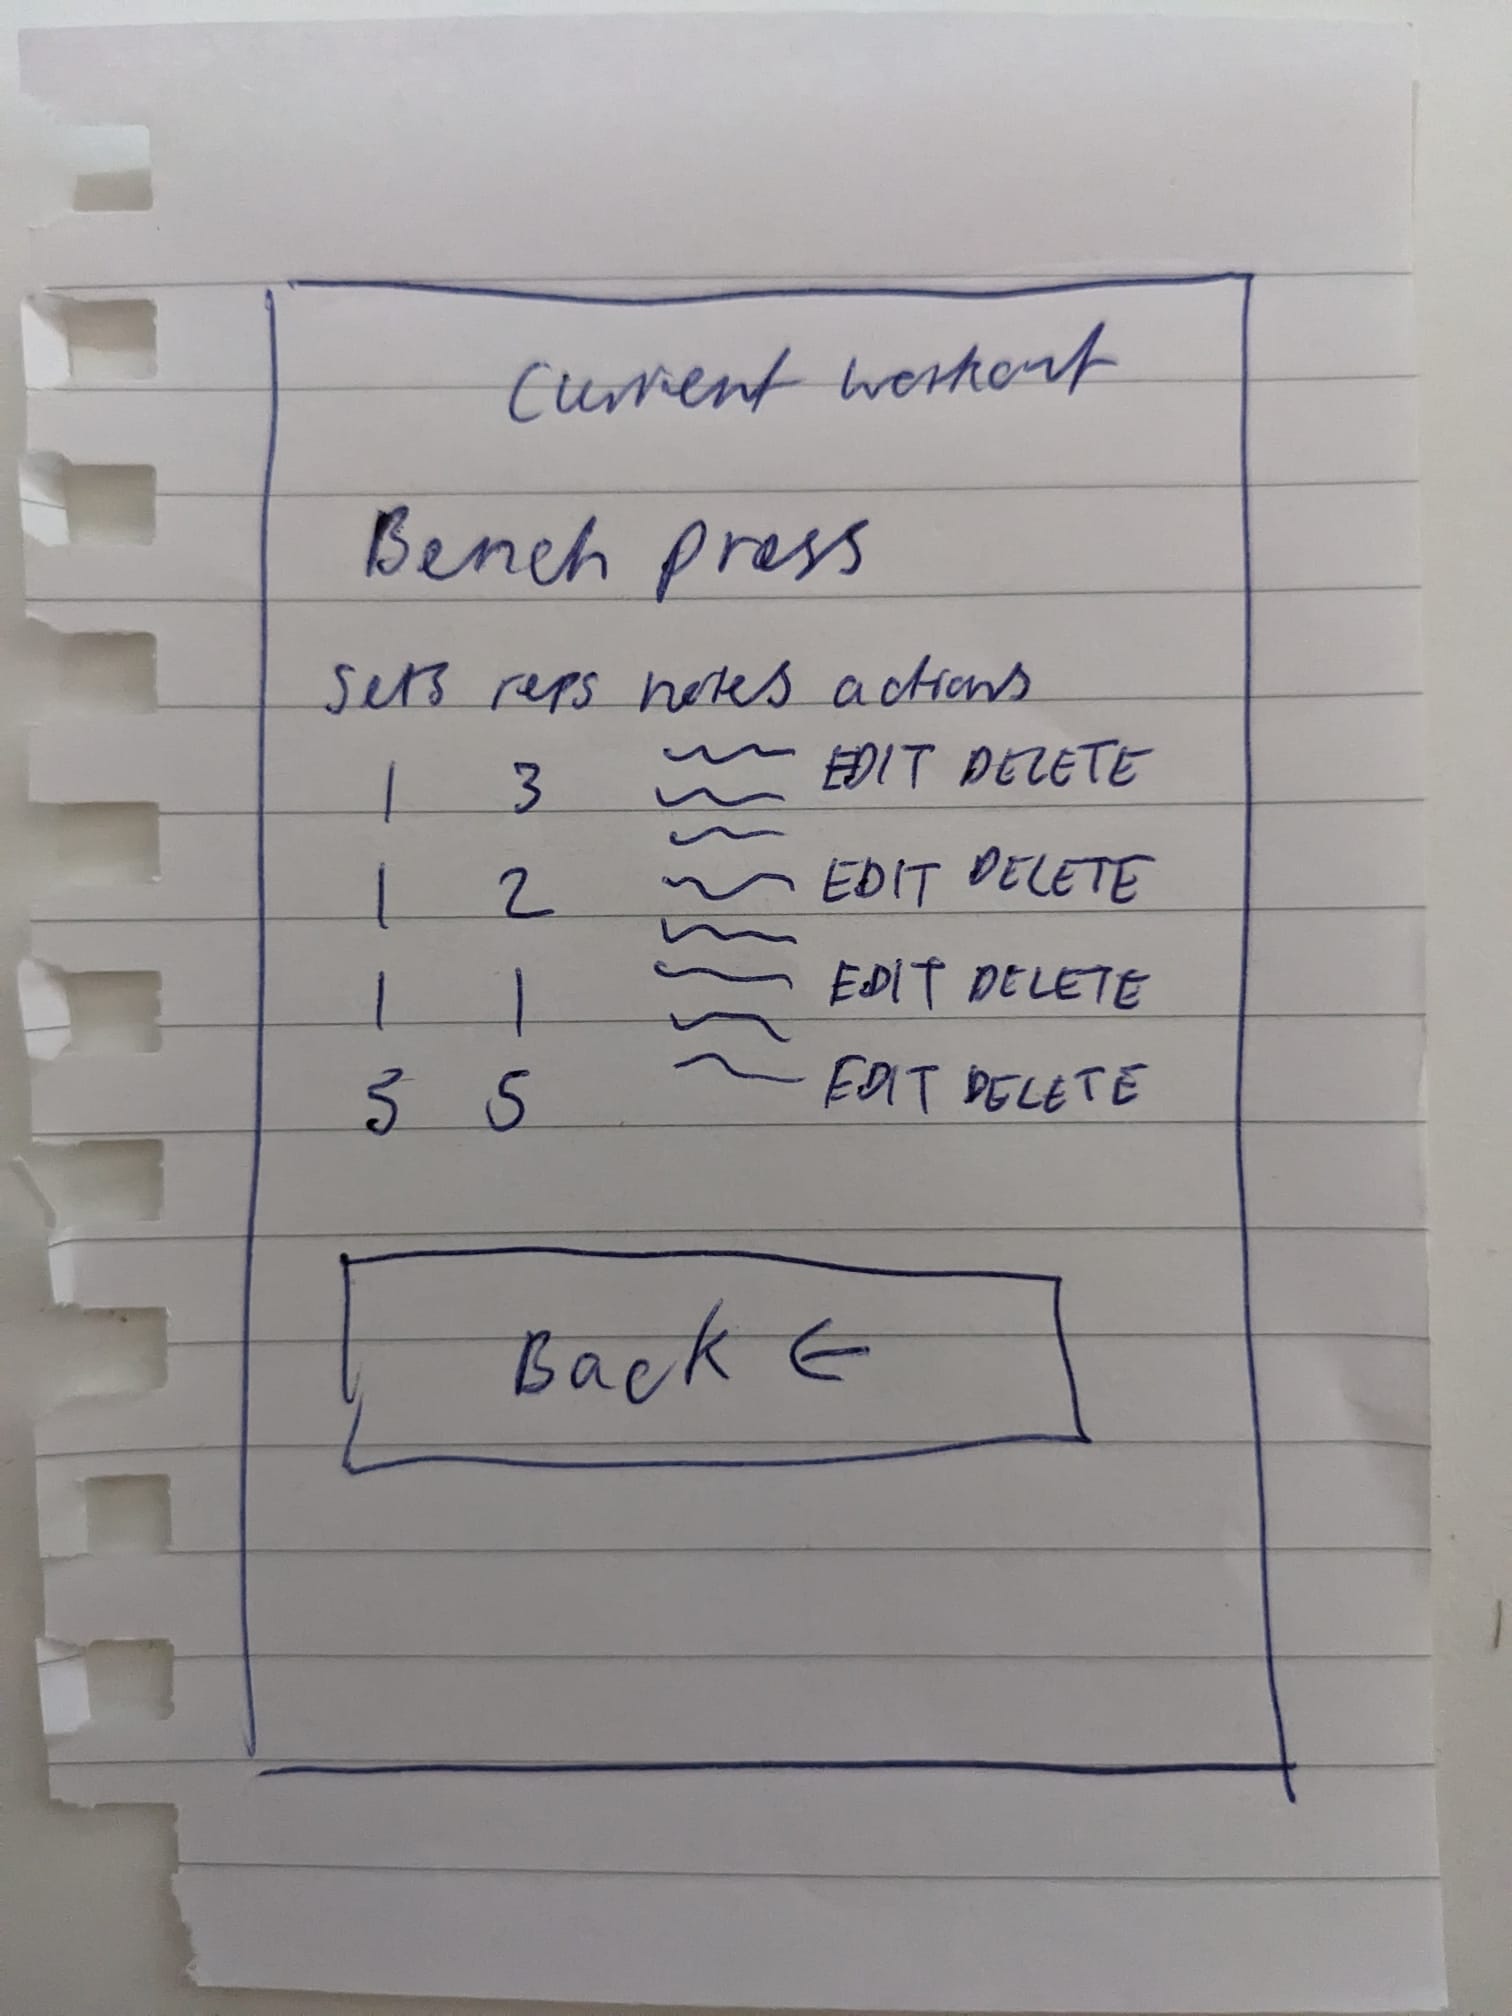 Current workout
Bench press
sets reps notes actions
1 3 EDIT DELETE
1 2 EDIT DELETE
1 1 EDIT DELETE
5 5 EDIT DELETE
Back ←